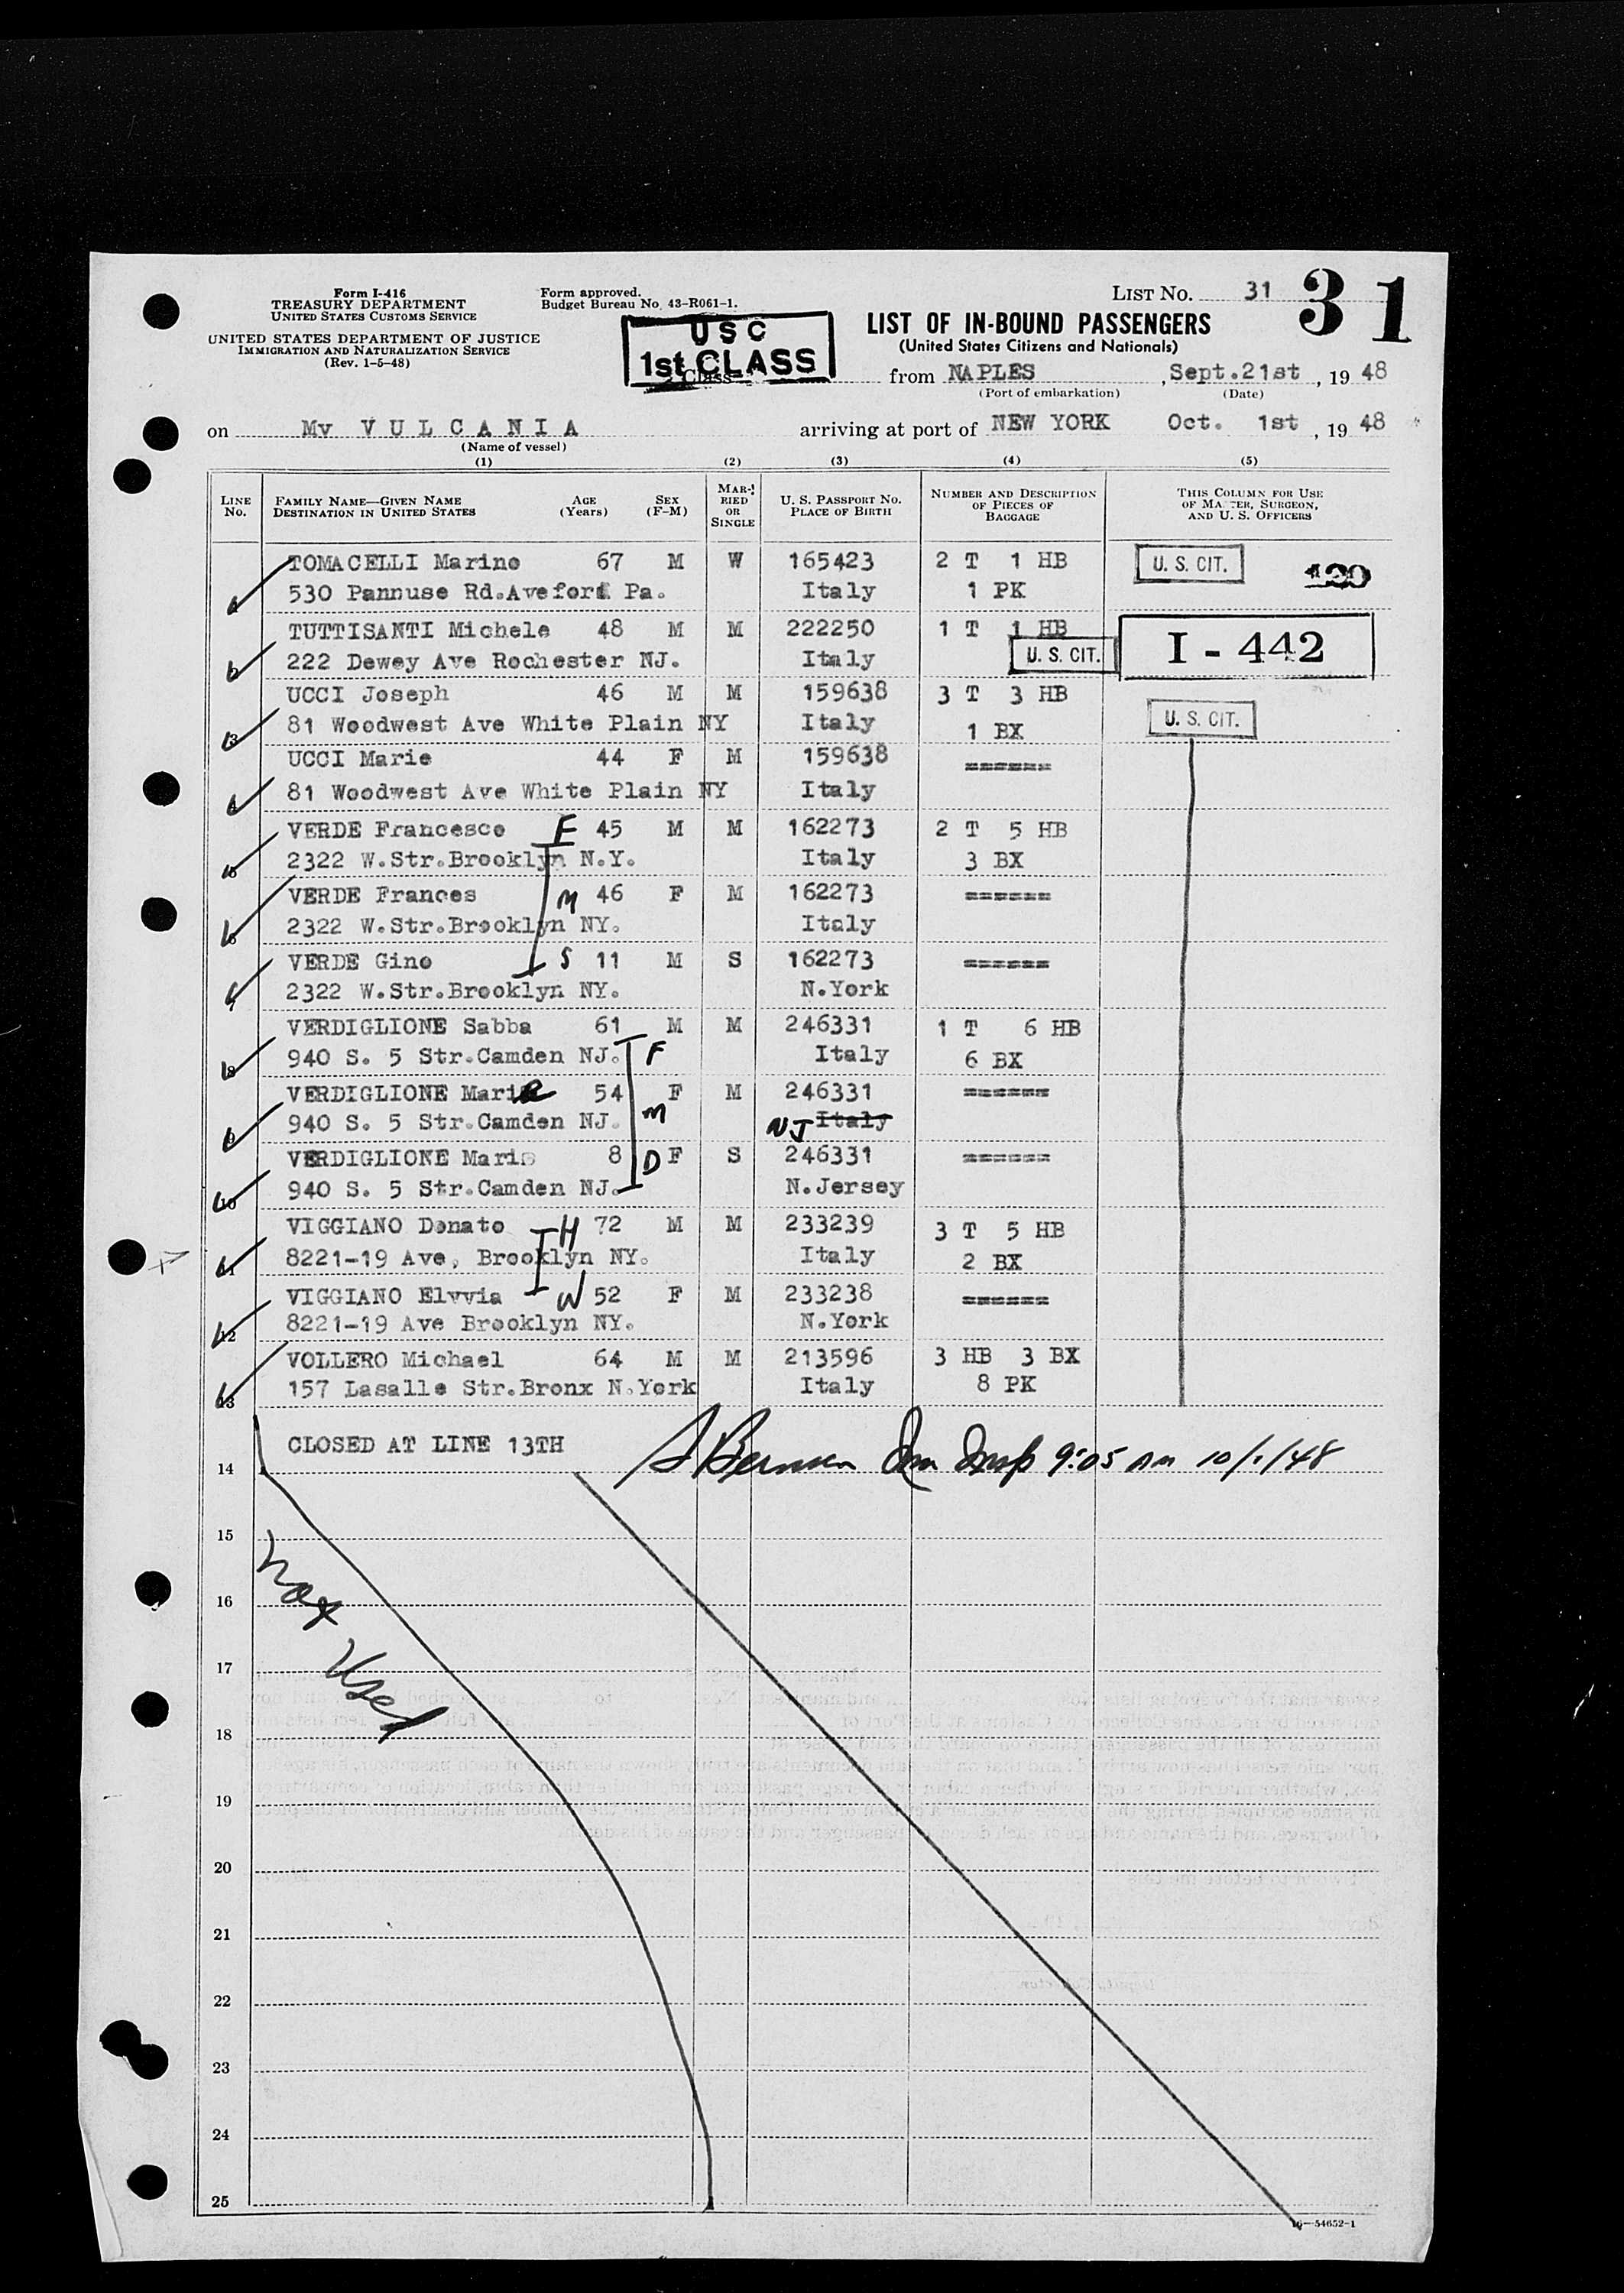 Form I-416
TREASURY DEPARTMENT
UNITED STATES CUSTOMS SERVICE
UNITED STATES DEPARTMENT OF JUSTICE
IMMIGRATION AND NATURALIZATION SERVICE
(Rev. 1-5-48)
Form approved.
Budget Bureau No. 43-R061-1.
USC
1st CLASS
Class
LIST NO. 31 31
LIST OF IN-BOUND PASSENGERS
(United States Citizens and Nationals)
from NAPLES, Sept.21st, 19 48
(Port of embarkation) (Date)
on Mv VULCANIA arriving at port of NEW YORK Oct. 1st, 19 48
(Name of vessel)
(1) (2) (3) (4) (5)
LINE No. FAMILY NAME—GIVEN NAME DESTINATION IN UNITED STATES AGE (Years) SEX (F-M) MARRIED OR SINGLE U. S. PASSPORT NO. PLACE OF BIRTH NUMBER AND DESCRIPTION OF PIECES OF BAGGAGE THIS COLUMN FOR USE OF MASTER, SURGEON, AND U. S. OFFICERS
TOMACELLI Marino 67 M W 165423 2 T 1 HB U. S. CIT.
1 530 Pannuse Rd.Aveford Pa. Italy 1 PK
TUTTISANTI Michele 48 M M 222250 1 T 1 HB
2 222 Dewey Ave Rochester NJ. Italy U. S. CIT. I - 442
UCCI Joseph 46 M M 159638 3 T 3 HB
3 81 Woodwest Ave White Plain NY Italy 1 BX U. S. CIT.
UCCI Marie 44 F M 159638 ======
4 81 Woodwest Ave White Plain NY Italy
VERDE Francesco F 45 M M 162273 2 T 5 HB
5 2322 W.Str.Brooklyn N.Y. Italy 3 BX
VERDE Frances M 46 F M 162273 ======
6 2322 W.Str.Brooklyn NY. Italy
VERDE Gino S 11 M S 162273 ======
7 2322 W.Str.Brooklyn NY. N.York
VERDIGLIONE Sabba 61 M M 246331 1 T 6 HB
8 940 S. 5 Str.Camden NJ. F Italy 6 BX
VERDIGLIONE Marie 54 F M 246331 ======
9 940 S. 5 Str.Camden NJ. M NJ Italy
VERDIGLIONE Maria 8 D F S 246331 ======
10 940 S. 5 Str.Camden NJ. N.Jersey
VIGGIANO Donato H 72 M M 233239 3 T 5 HB
11 8221-19 Ave, Brooklyn NY. Italy 2 BX
VIGGIANO Elvvia W 52 F M 233238 ======
12 8221-19 Ave Brooklyn NY. N.York
VOLLERO Michael 64 M M 213596 3 HB 3 BX
13 157 Lasalle Str.Bronx N.York Italy 8 PK
CLOSED AT LINE 13TH
14 Imm Insp 9:05 AM 10/1/48
15
16
Not Used
17
18
19
20
21
22
23
24
25
16—54652-1